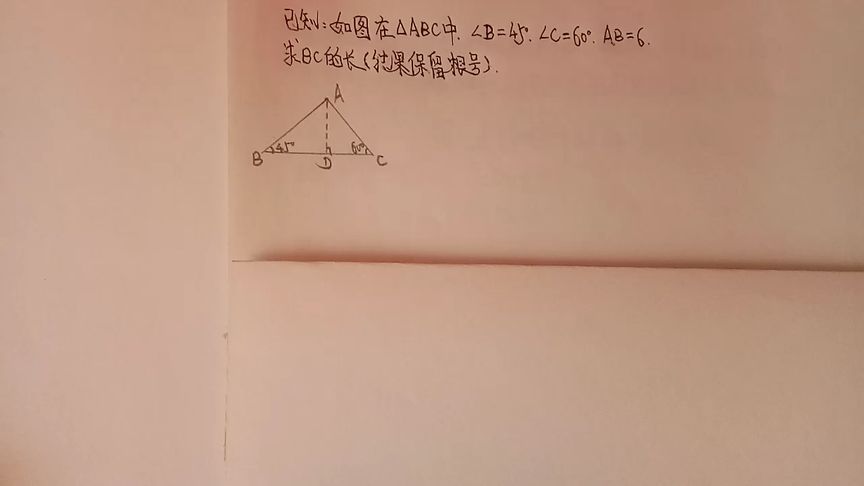 已知:如图在△ABC中.∠B=45°.∠C=60°.AB=6.
求BC的长(结果保留根号).
A
B 45° D 60° C